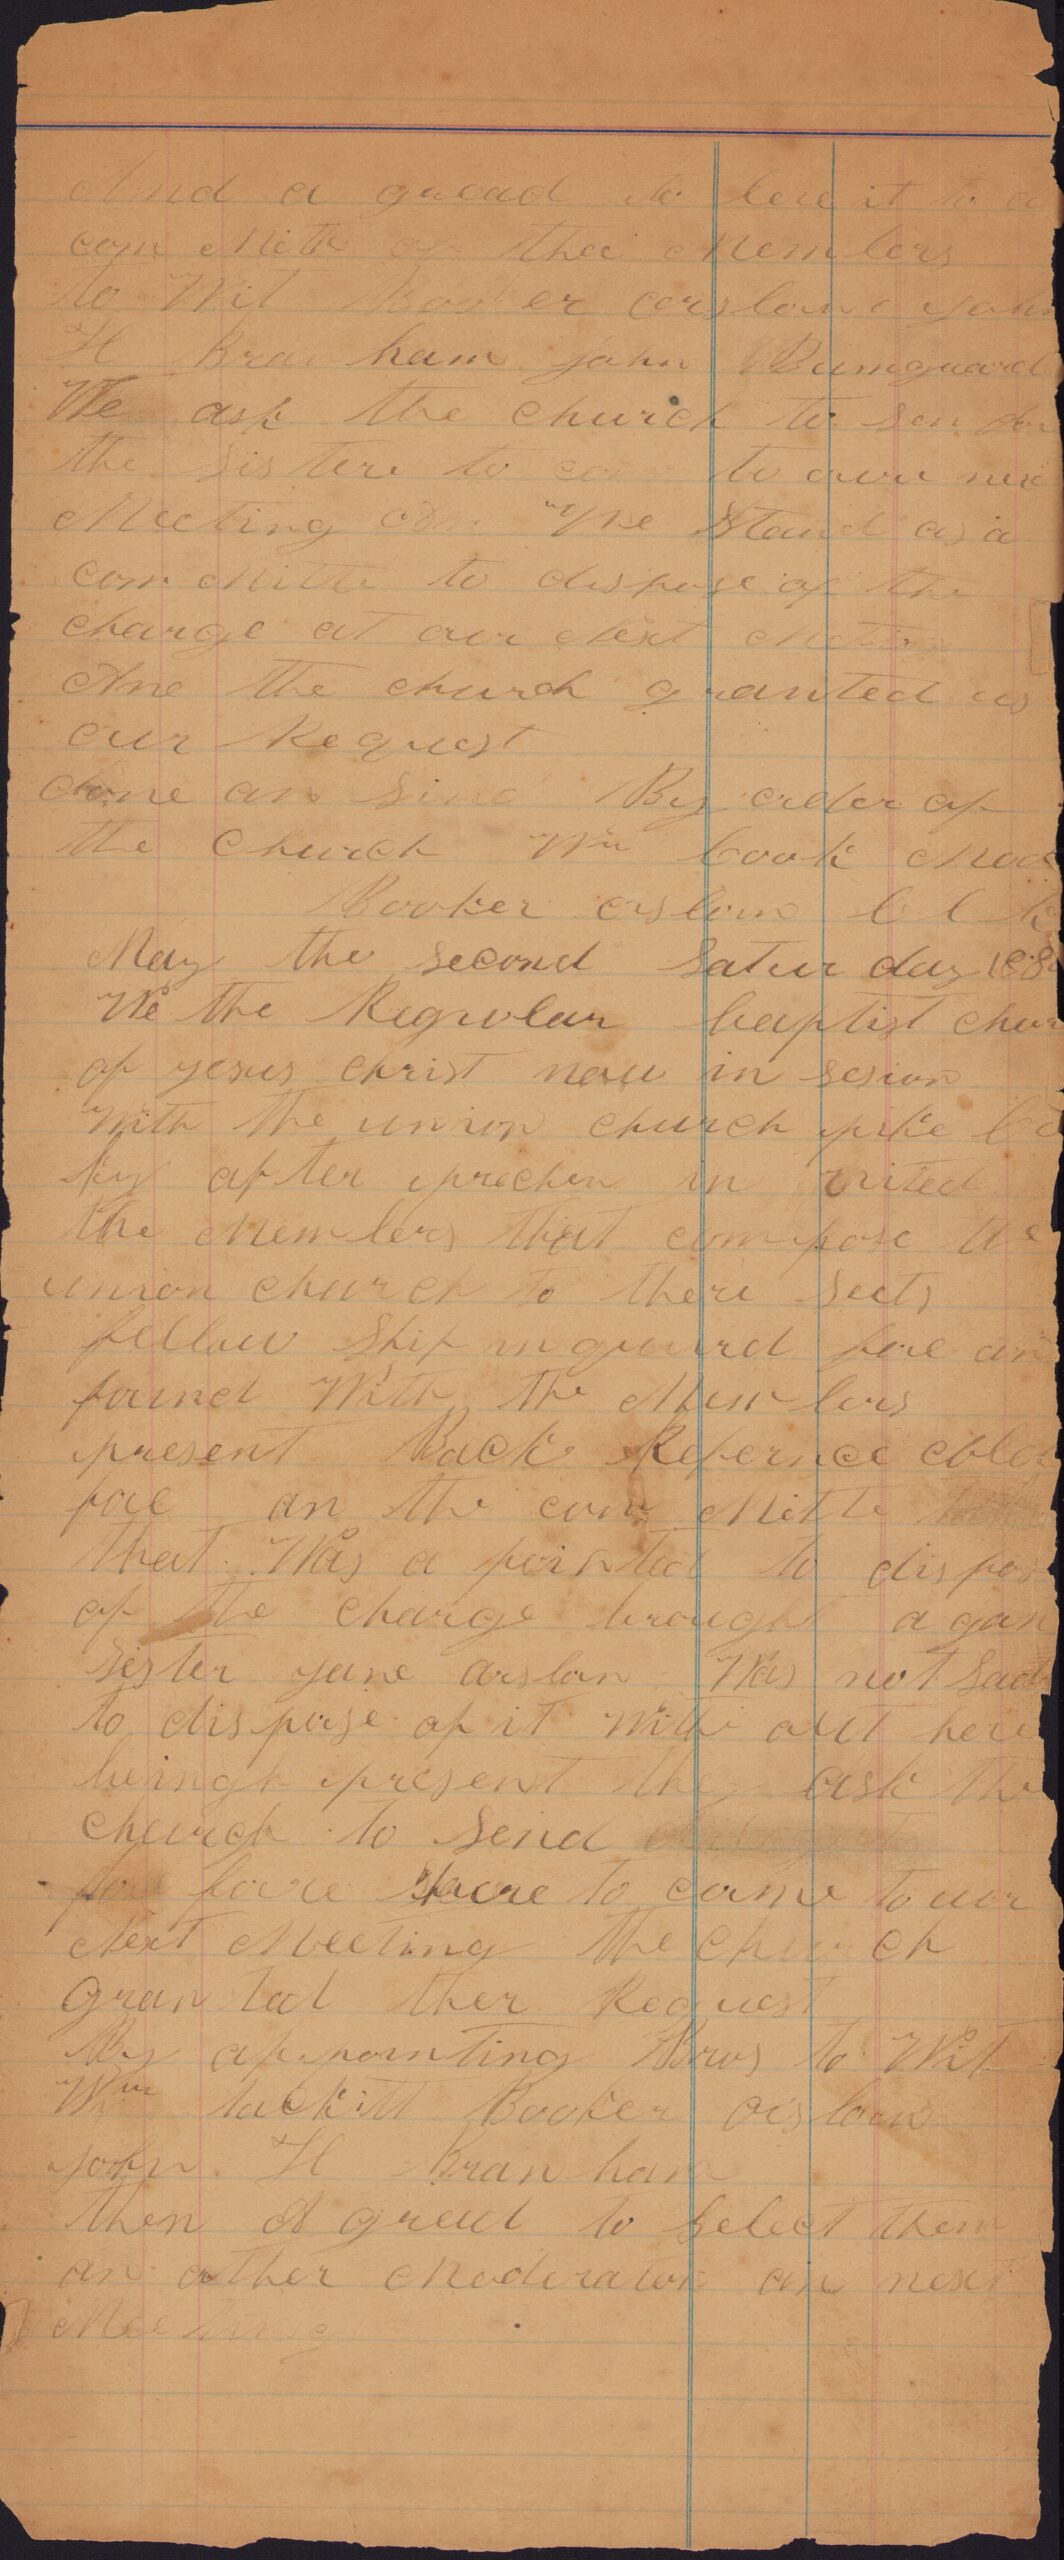 And a gread to leve it to a
com Mitte of thee Members
to Wit Booker orsborn John
H Bran ham john Bumguard
We ask the church to sen for
the sistere to com to oure nex
Meeting We Stand as a
com Mitte to dispose of the
charge at our Next Meting
And the church granted us
our Request
done an sind By order of
the church Wm Cook Mod
Booker orsborn C l k
May the second Satur day 188
We the Regular baptist chur
of jesus christ now in sesion
With the union church pike Co
ky after prechen in vited
the Members that compose the
union church to there seets
fellow Ship inquired fore an
found With the Members
present Back Refernce colld
fore an the com Mitte
that Was a pointed to dispos
of the charge brought a gan
Sister jane orsborn Was not Sad
to dispose of it With out here
beingh present they ask the
church to Send
for here to come to our
Next Meeting the church
gran ted ther Request
By ap pointing Bros to Wit
Wm tackitt Booker orsborn
john H Bran ham
then A gread to Select them
an other Moderator an next
Meeting